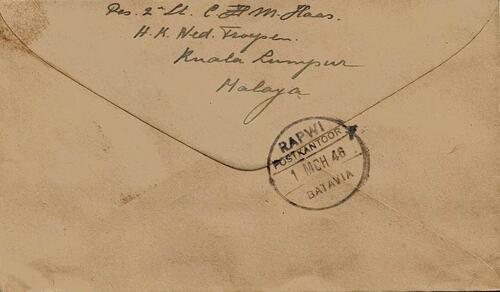 Res. 2e Lt. C H M. Haas.
H. K. Ned. Troepen.
Kuala Lumpur
Malaya
RAPWI
POSTKANTOOR
1 MCH 46
BATAVIA